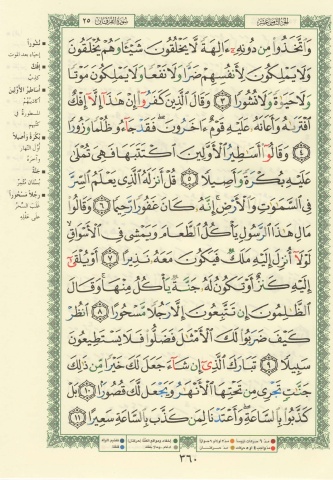 الجزء الثامن عشر
سورة الفرقان ٢٥
وَاتَّخَذُوا مِن دُونِهِ ءَالِهَةً لَّا يَخْلُقُونَ شَيْئًا وَهُمْ يُخْلَقُونَ
وَلَا يَمْلِكُونَ لِأَنفُسِهِمْ ضَرًّا وَلَا نَفْعًا وَلَا يَمْلِكُونَ مَوْتًا
وَلَا حَيَوٰةً وَلَا نُشُورًا ٣ وَقَالَ الَّذِينَ كَفَرُوا إِنْ هَٰذَا إِلَّا إِفْكٌ
افْتَرَىٰهُ وَأَعَانَهُ عَلَيْهِ قَوْمٌ ءَاخَرُونَ فَقَدْ جَاءُو ظُلْمًا وَزُورًا
٤ وَقَالُوا أَسَاطِيرُ الْأَوَّلِينَ اكْتَتَبَهَا فَهِيَ تُمْلَىٰ
عَلَيْهِ بُكْرَةً وَأَصِيلًا ٥ قُلْ أَنزَلَهُ الَّذِي يَعْلَمُ السِّرَّ
فِي السَّمَٰوَٰتِ وَالْأَرْضِ إِنَّهُ كَانَ غَفُورًا رَّحِيمًا ٦ وَقَالُوا
مَالِ هَٰذَا الرَّسُولِ يَأْكُلُ الطَّعَامَ وَيَمْشِي فِي الْأَسْوَاقِ
لَوْلَا أُنزِلَ إِلَيْهِ مَلَكٌ فَيَكُونَ مَعَهُ نَذِيرًا ٧ أَوْ يُلْقَىٰ
إِلَيْهِ كَنزٌ أَوْ تَكُونُ لَهُ جَنَّةٌ يَأْكُلُ مِنْهَا وَقَالَ
الظَّٰلِمُونَ إِن تَتَّبِعُونَ إِلَّا رَجُلًا مَّسْحُورًا ٨ انظُرْ
كَيْفَ ضَرَبُوا لَكَ الْأَمْثَٰلَ فَضَلُّوا فَلَا يَسْتَطِيعُونَ
سَبِيلًا ٩ تَبَارَكَ الَّذِي إِن شَاءَ جَعَلَ لَكَ خَيْرًا مِّن ذَٰلِكَ
جَنَّٰتٍ تَجْرِي مِن تَحْتِهَا الْأَنْهَٰرُ وَيَجْعَل لَّكَ قُصُورًا ١٠ بَلْ
كَذَّبُوا بِالسَّاعَةِ وَأَعْتَدْنَا لِمَن كَذَّبَ بِالسَّاعَةِ سَعِيرًا ١١
نُشُورًا
إحياء بعد الموت
إفك
كذب
أساطير الأولين
أكاذيبهم
المسطورة في
كتبهم
بكرة وأصيلا
أول النهار
وآخره
جنة
بستان مثمر
رجلا مسحورا
غلب السحر
على عقله
٣٦٠